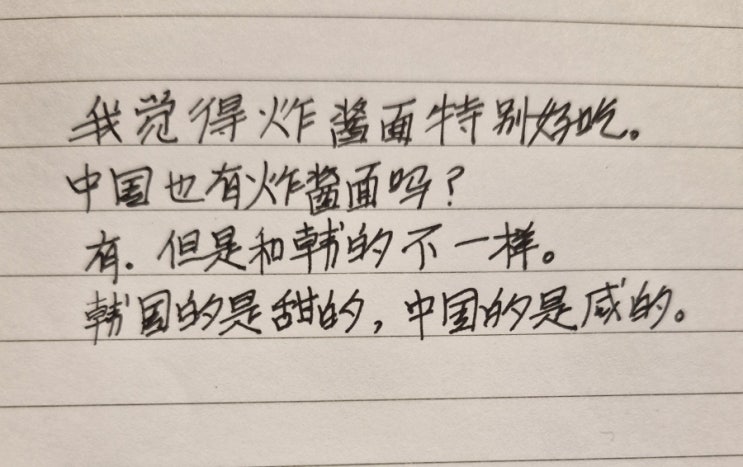 我觉得炸酱面特别好吃。
中国也有炸酱面吗？
有. 但是和韩的不一样。
韩国的是甜的, 中国的是咸的。